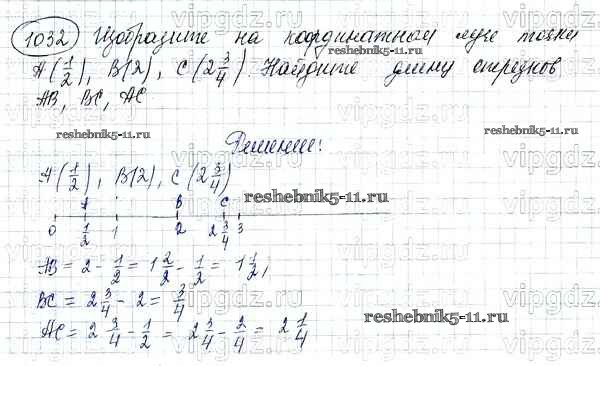 1032 Изобразите на координатном луче точки
A(1/2), B(2), C(2 3/4). Найдите длину отрезков
AB, BC, AC
Решение:
A(1/2), B(2), C(2 3/4)
A B C
0 1/2 1 2 2 3/4 3
AB = 2 - 1/2 = 1 2/2 - 1/2 = 1 1/2,
BC = 2 3/4 - 2 = 3/4
AC = 2 3/4 - 1/2 = 2 3/4 - 2/4 = 2 1/4
reshebnik5-11.ru
reshebnik5-11.ru
reshebnik5-11.ru
reshebnik5-11.ru
reshebnik5-11.ru
vipgdz.ru